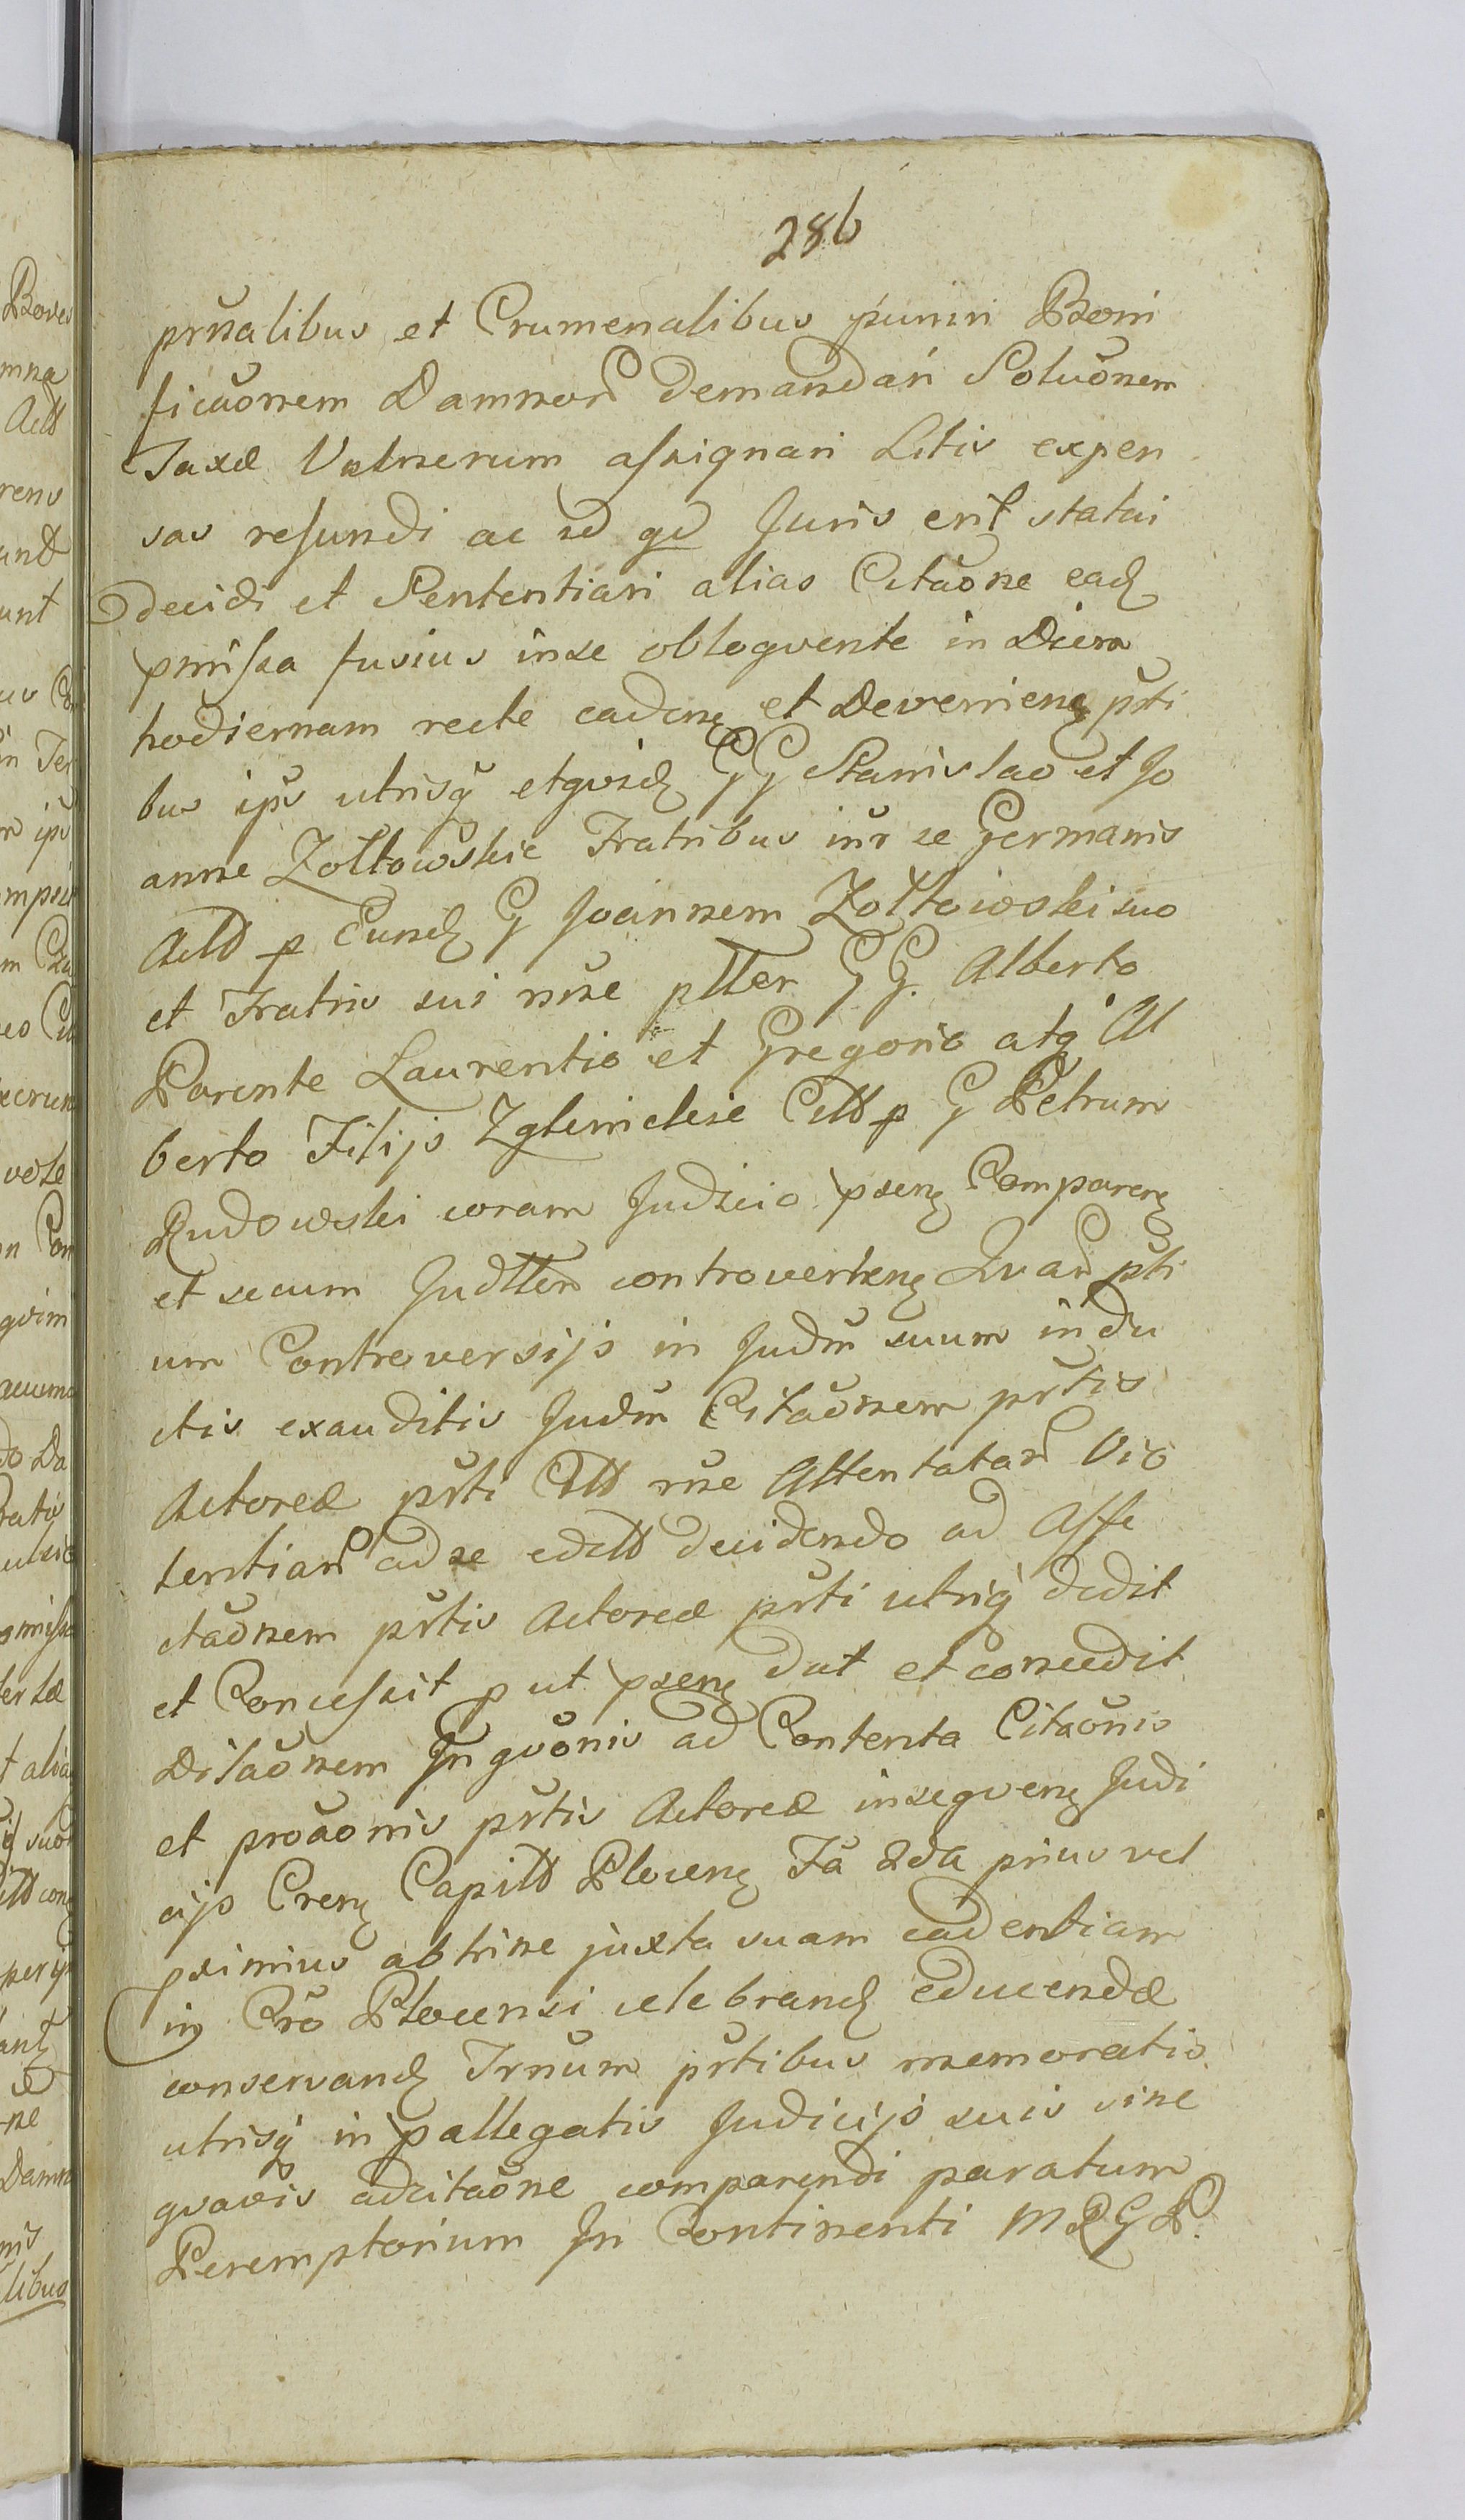 286
prnalibus et Crumenalibus puniri Boni
ficaõnem Damnor demandari Soluõnem
Taxæ Vulnerum assignari Litis expen
sas refundi ac id qd Juris erit statui
decidi et Sententiari alias Citaõne ead
pmissa fusius in se obloqvente in Diem
hodiernam recte caden et devenien prti
bus ips utrisq etqvid GG Stanislao et Jo
anne Zołtowskie Fratribus intr se Germanis
Actt p Eund G Joannem Zołtowski suo
et Fratris sui nñe ptter GG. Alberto
Parente Laurentio et Gregorio atq Al
berto Filijs Zglenickie Citt p G Petrum
Rudowski coram Judicio psen Comparen
et secum Judtter controverten Qvar prti
um Controversijs in Judm suum indu
ctis exauditis Judm Citaõnem prtis
Actoreæ prti Citt rñe Attentatar Vio
lentiar ad se editt decidendo ad Affe
ctaõnem prtis Actoreæ prti utriq dedit
et Concessit p ut psen dat et concedit
Dilaõnem Inqvõnis ad Contenta Citaõnis
et proãonis prtis Actoreæ inseqven Judi
cijs Cren Capitt Plocen Fa 2da prius vel
pximius abhinc juxta suam cadentiam
in Cro Plocensi celebrand educendæ
conservand Trnum prtibus memoratis
utrisq in pallegatis Judicijs suis sine
qvavis adcitaõne comparendi paratum
Peremptorium In Continenti M R G P.